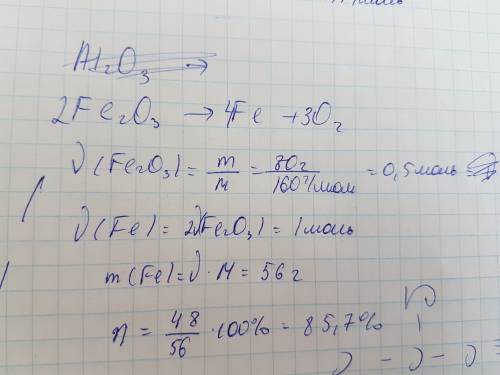 моль
Al₂O₃ →
2Fe₂O₃ → 4Fe + 3O₂
ν(Fe₂O₃) = m/M = 80г/160г/моль = 0,5 моль
ν(Fe) = 2ν(Fe₂O₃) = 1 моль
m(Fe) = ν · M = 56 г
η = 48/56 · 100% = 85,7%